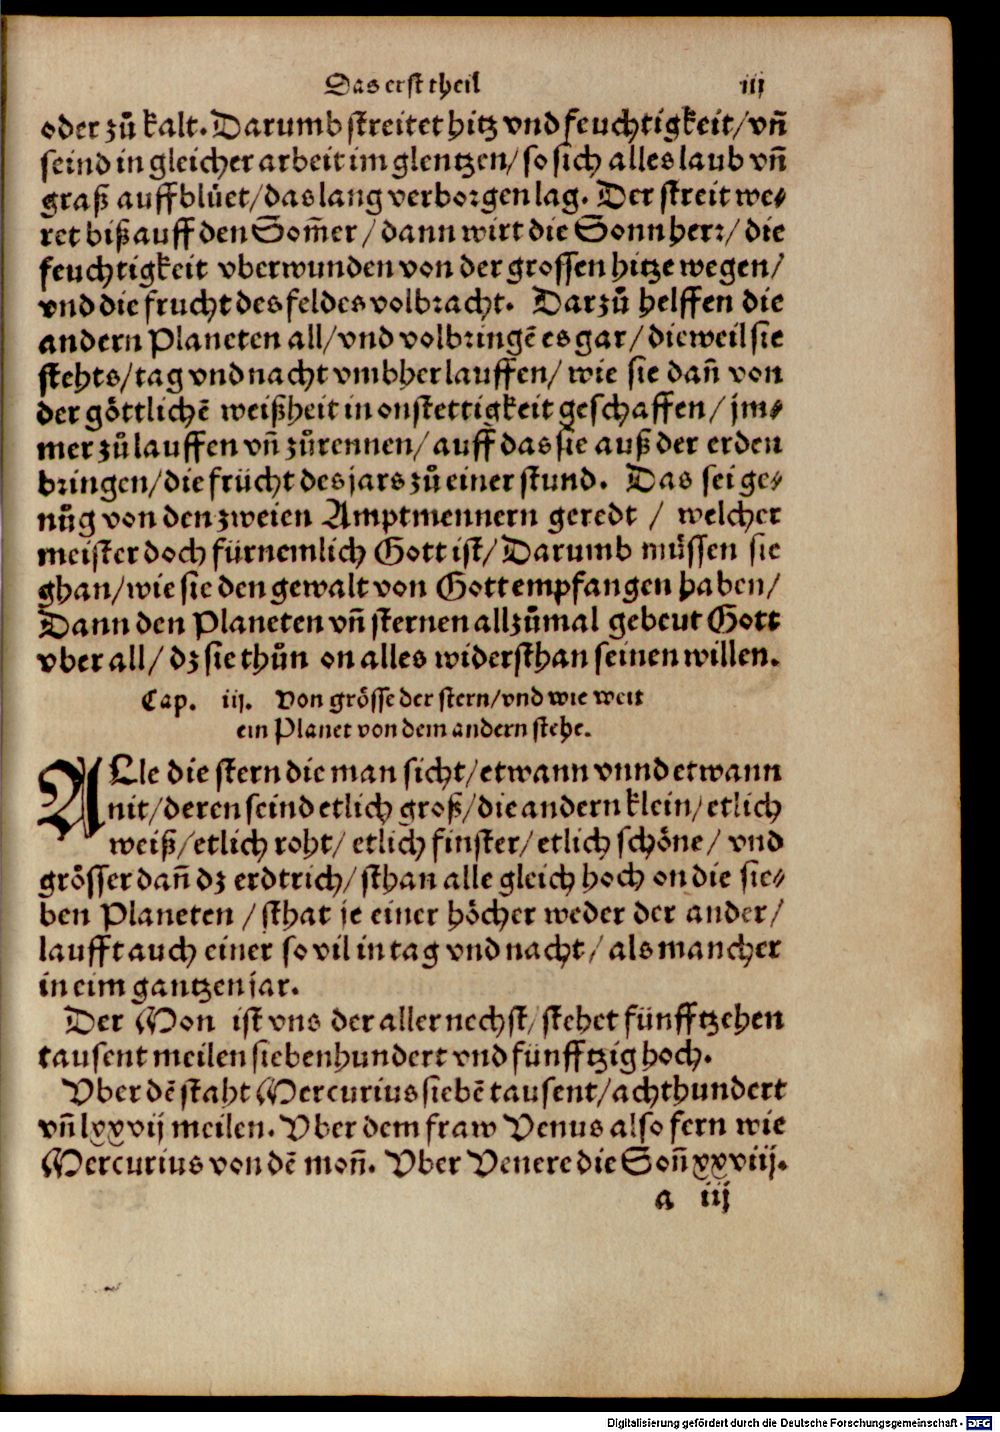 Das erst theil iij
oder zů kalt. Darumb streitet hitz vnd feuchtigkeit/ vñ
seind in gleicher arbeit im glentzen/ so sich alles laub vñ
graß auffblůet/ das lang verborgen lag. Der streit we⸗
ret biß auff den Som̃er/ dann wirt die Sonn herr/ die
feuchtigkeit vberwunden von der grossen hitze wegen/
vnd die frucht des feldes volbracht. Darzů helffen die
andern Planeten all/ vnd volbringẽ es gar/ dieweil sie
stehts/ tag vnd nacht vmbher lauffen/ wie sie dañ von
der göttlichẽ weißheit in onstettigkeit geschaffen/ jm⸗
mer zů lauffen vñ zůrennen/ auff das sie auß der erden
bringen/ die frücht des jars zů einer stund. Das sei ge⸗
nůg von den zweien Amptmennern geredt / welcher
meister doch fürnemlich Gott ist/ Darumb müssen sie
ghan/ wie sie den gewalt von Gott empfangen haben/
Dann den Planeten vñ sternen allzůmal gebeut Gott
vber all/ dz sie thůn on alles widersthan seinen willen.
Cap. iij. Von grösse der stern/ vnd wie weit
ein Planet von dem andern stehe.
ALle die stern die man sicht/ etwann vnnd etwann
nit/ deren seind etlich groß/ die andern klein/ etlich
weiß/ etlich roht/ etlich finster/ etlich schöne/ vnd
grösser dañ dz erdtrich/ sthan alle gleich hoch on die sie⸗
ben Planeten / sthat je einer höcher weder der ander/
laufft auch einer so vil in tag vnd nacht/ als mancher
in eim gantzen jar.
Der Mon ist vns der aller nechst/ stehet fünfftzehen
tausent meilen siebenhundert vnd fünfftzig hoch.
Vber dẽ staht Mercurius siebẽ tausent/ achthundert
vñ lxxvij meilen. Vber dem fraw Venus also fern wie
Mercurius von dẽ moñ. Vber Venere die Soñ xxviij.
a iij
Digitalisierung gefördert durch die Deutsche Forschungsgemeinschaft - DFG